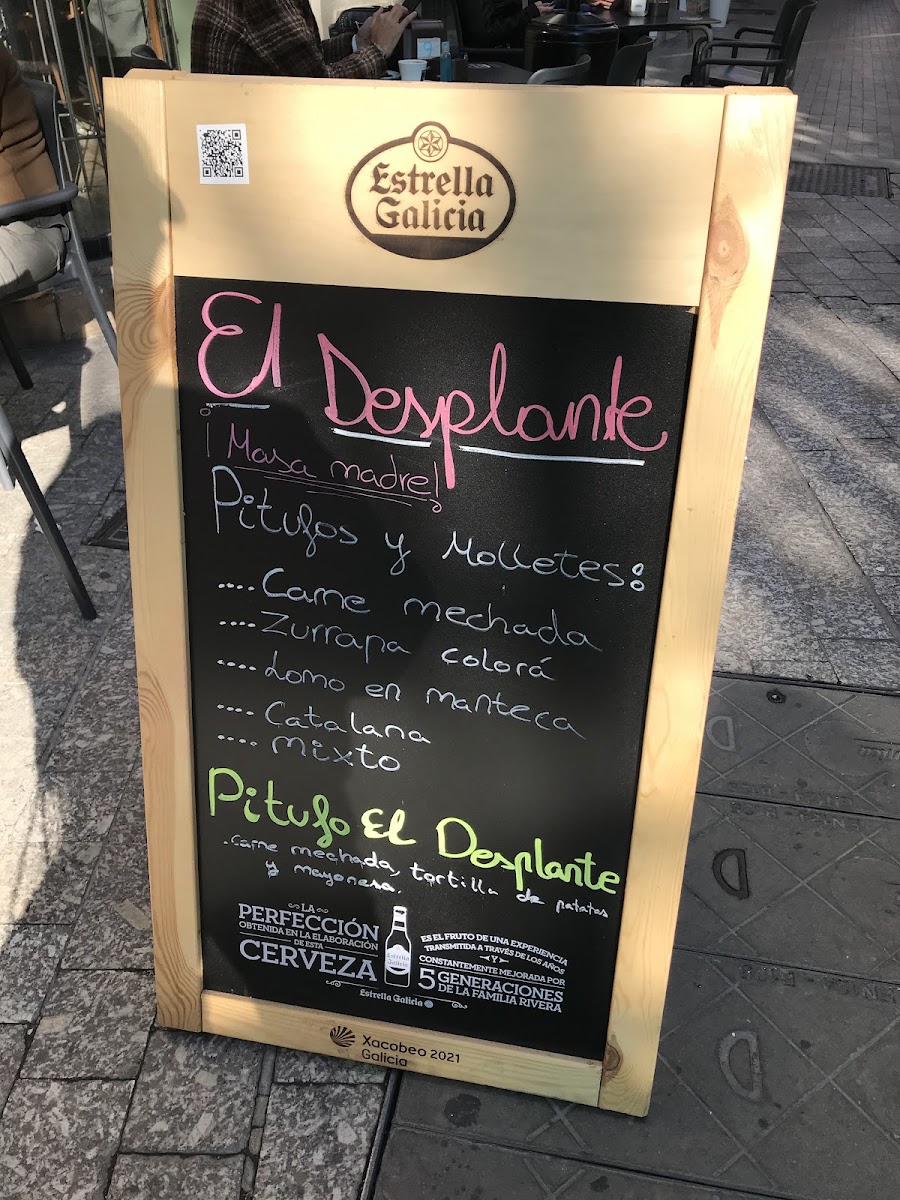 Estrella
Galicia
El Desplante
¡Masa madre!
Pitufos y Molletes:
....Carne mechada
....Zurrapa colorá
....Lomo en manteca
....Catalana
....mixto
Pitufo El Desplante
.carne mechada, tortilla de patatas
y mayonesa.
LA
PERFECCIÓN
OBTENIDA EN LA ELABORACIÓN
DE ESTA
CERVEZA
Estrella
Galicia
ES EL FRUTO DE UNA EXPERIENCIA
TRANSMITIDA A TRAVÉS DE LOS AÑOS
Y
CONSTANTEMENTE MEJORADA POR
5 GENERACIONES
DE LA FAMILIA RIVERA
Estrella Galicia
Xacobeo 2021
Galicia